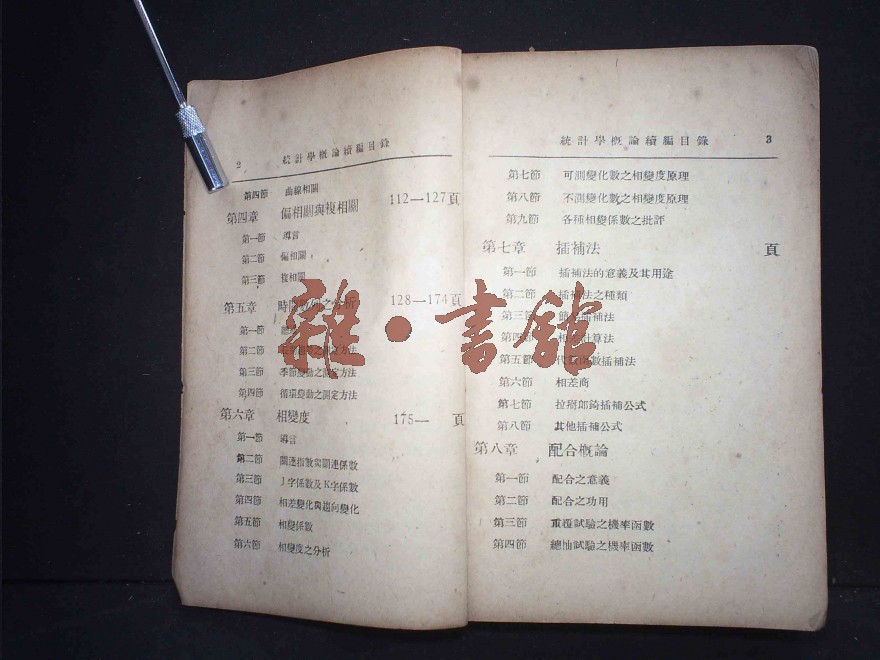 2 統計學概論續編目錄
第四節 曲線相關
第四章 偏相關與複相關 112—127頁
第一節 導言
第二節 偏相關
第三節 複相關
第五章 時間數列之分析 128—174頁
第一節
第二節 之測定方法
第三節 季節變動之測定方法
第四節 循環變動之測定方法
第六章 相變度 175— 頁
第一節 導言
第二節 關連指數與關連係數
第三節 J字係數及K字係數
第四節 相差變化與趨向變化
第五節 相變係數
第六節 相變度之分析
統計學概論續編目錄 3
第七節 可測變化數之相變度原理
第八節 不測變化數之相變度原理
第九節 各種相變係數之批評
第七章 插補法 頁
第一節 插補法的意義及其用途
第二節 插補法之種類
第三節 插補法
第四節 計算法
第五節 代數函數插補法
第六節 相差商
第七節 拉格郎錡插補公式
第八節 其他插補公式
第八章 配合概論
第一節 配合之意義
第二節 配合之功用
第三節 重覆試驗之機率函數
第四節 總抽試驗之機率函數
雜·書館